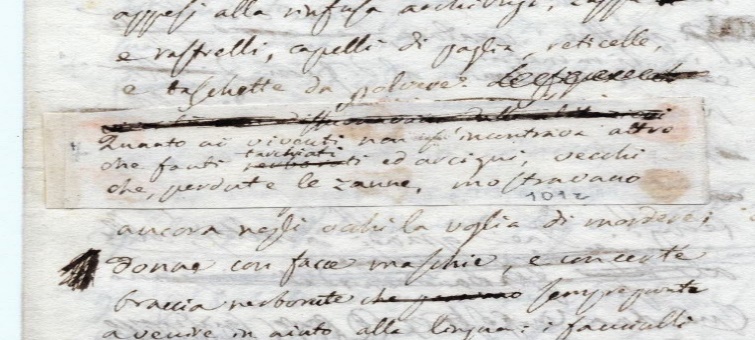 appesi alla rinfusa archibugi, zappe
e rastrelli, capelli di paglia, reticelle,
e taschette da polvere.
Quanto ai viventi non s'incontrava altro
che fanti tarchiati ed arcigni, vecchi
che, perdute le zanne, mostravano
1092
ancora negli occhi la voglia di mordere;
donne con facce maschie, e con certe
braccia nerborute che sempre pronte
a venire in aiuto alla lingua: i fanciulli